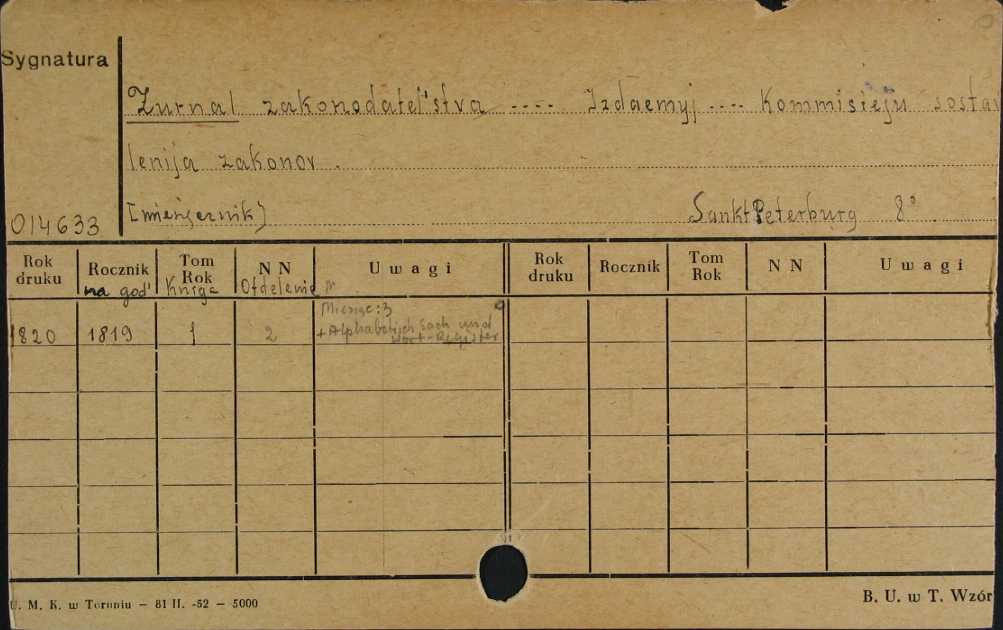 Sygnatura
Żurnal zakonodatel'stva ---- Izdaemyj ---- Kommisieju sostav
lenija zakonov.
[miesięcznik]
Sankt Peterburg 8°
014633
Rok druku Rocznik Tom Rok N N Uwagi Rok druku Rocznik Tom Rok N N Uwagi
na god' Kniga Otdelenie
Miesiąc: 3
1820 1819 1 2 + Alphabetisch Sach und
Wort-Register
U. M. K. w Toruniu — 81 II. -52 — 5000
B. U. w T. Wzór